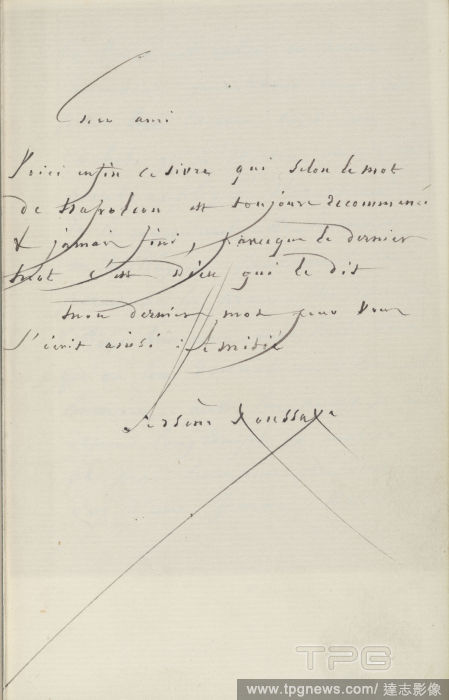 Cher ami
Voici enfin ce livre qui selon le mot
de Napoleon est toujours recommencé
& jamais fini, parceque le dernier
mot c'est Dieu qui le dit
mon dernier mot pour vous
s'écrit ainsi : Amitié
Arsène Houssaye
TPG
www.tpgnews.com/達志影像